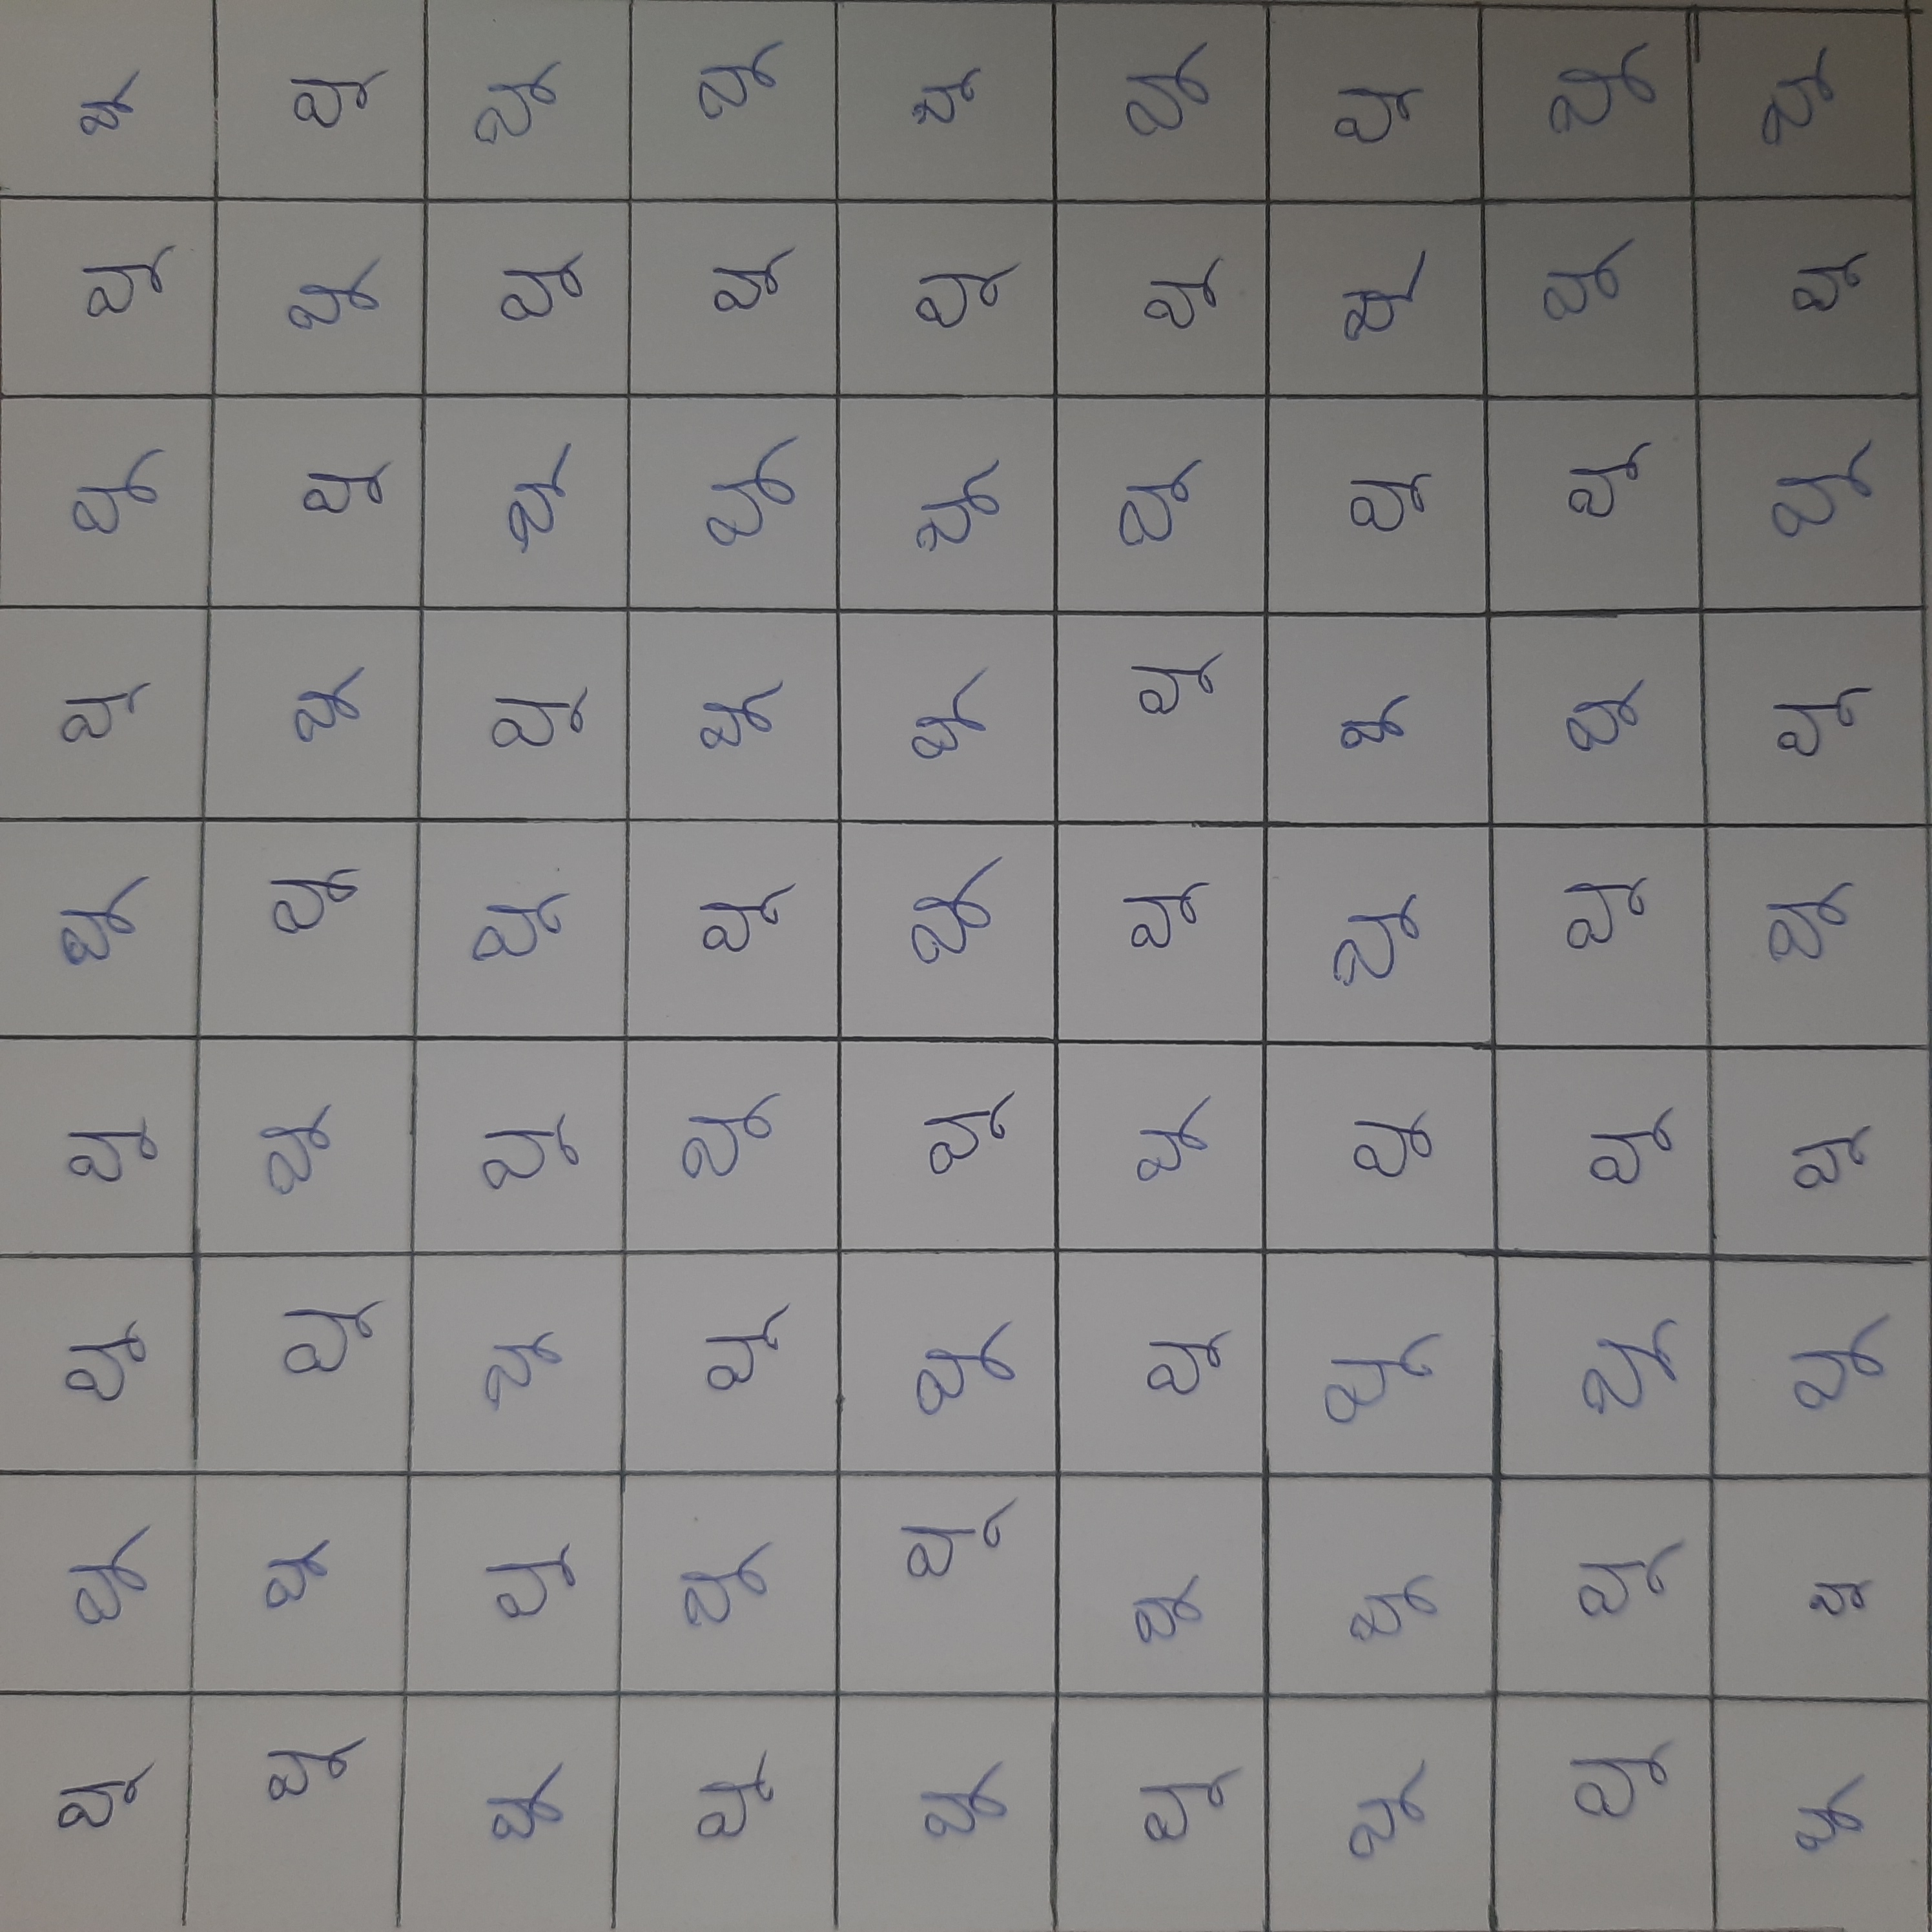 થૂ થૂ થૂ થૂ થૂ થૂ થૂ થૂ થૂ
થૂ થૂ થૂ થૂ થૂ થૂ થૂ થૂ થૂ
થૂ થૂ થૂ થૂ થૂ થૂ થૂ થૂ થૂ
થૂ થૂ થૂ થૂ થૂ થૂ થૂ થૂ થૂ
થૂ થૂ થૂ થૂ થૂ થૂ થૂ થૂ થૂ
થૂ થૂ થૂ થૂ થૂ થૂ થૂ થૂ થૂ
થૂ થૂ થૂ થૂ થૂ થૂ થૂ થૂ થૂ
થૂ થૂ થૂ થૂ થૂ થૂ થૂ થૂ થૂ
થૂ થૂ થૂ થૂ થૂ થૂ થૂ થૂ થૂ